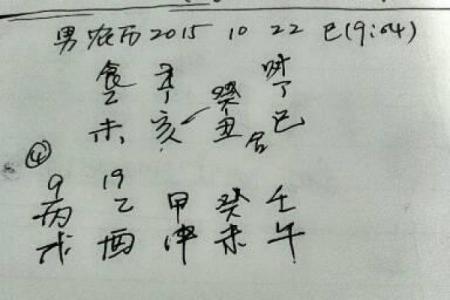 男 农历 2015 10 22 巳(9:04)
食 癸
乙 丁 丁
未 亥 丑 合 巳
④
9 19
丙 乙 甲 癸 壬
戌 酉 申 未 午